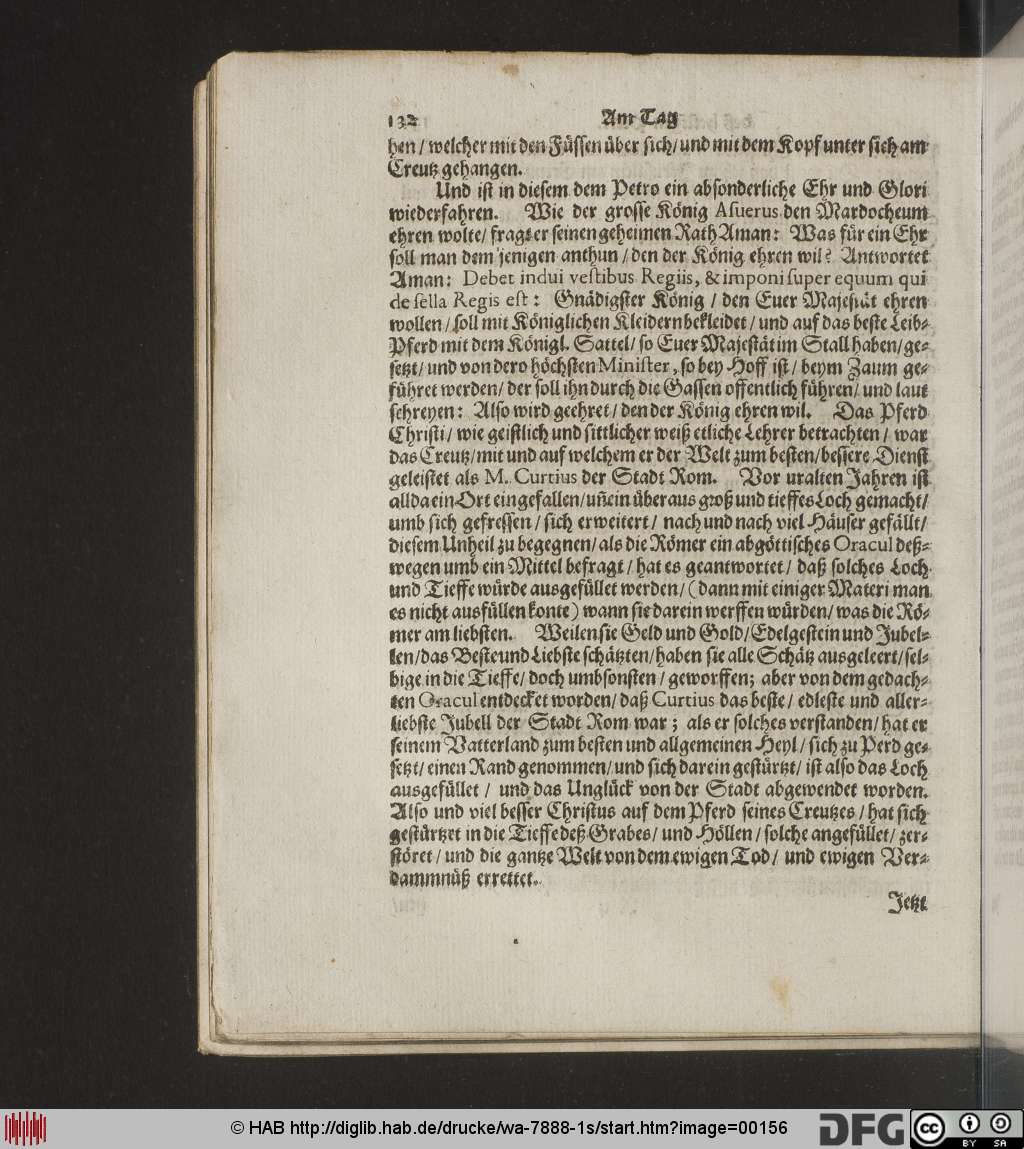 132 Am Tag
hen / welcher mit den Füssen über sich / und mit dem Kopf unter sich am
Creutz gehangen.
Und ist in diesem dem Petro ein absonderliche Ehr und Glori
wiederfahren. Wie der grosse König Asuerus den Mardocheum
ehren wolte / fragt er seinen geheimen Rath Aman: Was für ein Ehr
soll man dem jenigen anthun / den der König ehren wil? Antwortet
Aman: Debet indui vestibus Regiis, & imponi super equum qui
de sella Regis est: Gnädigster König / den Euer Majestät ehren
wollen / soll mit Königlichen Kleidern bekleidet / und auf das beste Leib-
Pferd mit dem Königl. Sattel / so Euer Majestät im Stall haben / ge-
setzt / und von dero höchsten Minister, so bey Hoff ist / beym Zaum ge-
führet werden / der soll ihn durch die Gassen offentlich führen / und laut
schreyen: Also wird geehret / den der König ehren wil. Das Pferd
Christi / wie geistlich und sittlicher weiß etliche Lehrer betrachten / war
das Creutz / mit und auf welchem er der Welt zum besten / bessere Dienst
geleistet als M. Curtius der Stadt Rom. Vor uralten Jahren ist
allda ein Ort eingefallen / uñ ein überaus groß und tieffes Loch gemacht /
umb sich gefressen / sich erweitert / nach und nach viel Häuser gefällt /
diesem Unheil zu begegnen / als die Römer ein abgöttisches Oracul deß-
wegen umb ein Mittel befragt / hat es geantwortet / daß solches Loch
und Tieffe würde ausgefüllet werden / (dann mit einiger Materi man
es nicht ausfüllen konte) wann sie darein werffen würden / was die Rö-
mer am liebsten. Weilen sie Geld und Gold / Edelgestein und Jubel-
len / das Beste und Liebste schätzten / haben sie alle Schätz ausgeleert / sel-
bige in die Tieffe / doch umbsonsten / geworffen; aber von dem gedach-
ten Oracul entdecket worden / daß Curtius das beste / edleste und aller-
liebste Jubell der Stadt Rom war; als er solches verstanden / hat er
seinem Vatterland zum besten und allgemeinen Heyl / sich zu Perd ge-
setzt / einen Rand genommen / und sich darein gestürtzt / ist also das Loch
ausgefüllet / und das Unglück von der Stadt abgewendet worden.
Also und viel besser Christus auf dem Pferd seines Creutzes / hat sich
gestürtzet in die Tieffe deß Grabes / und Höllen / solche angefüllet / zer-
störet / und die gantze Welt von dem ewigen Tod / und ewigen Ver-
dammnüß errettet.
Jetzt
© HAB http://diglib.hab.de/drucke/wa-7888-1s/start.htm?image=00156
DFG
cc BY SA